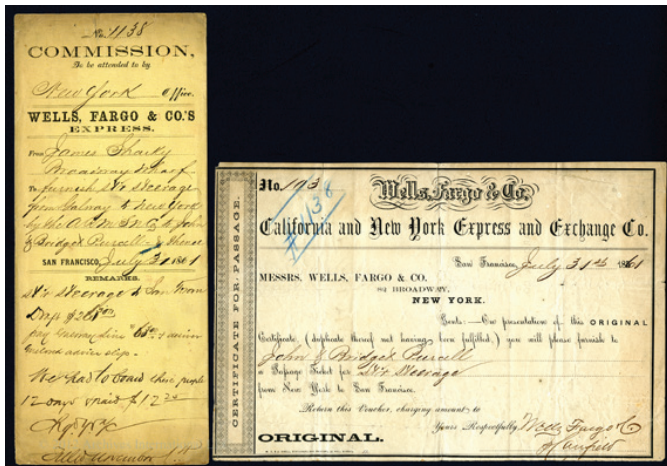 No. 1138
COMMISSION,
To be attended to by
New York Office.
WELLS, FARGO & CO.'S
EXPRESS.
From James Sharky
Broadway Wharf
To furnish str steerage
from Galway to New York
by the to John
& Bridget Purcell & thence
SAN FRANCISCO, July 31 1861
REMARKS.
str steerage to San
pay Galway line
We had to board these people
12 days & paid $12
CERTIFICATE FOR PASSAGE.
No. 193
#1138
Wells, Fargo & Co.
California and New York Express and Exchange Co.
San Francisco, July 31st 1861
MESSRS. WELLS, FARGO & CO.
82 BROADWAY,
NEW YORK.
Gents:—On presentation of this ORIGINAL
Certificate, (duplicate thereof not having been fulfilled,) you will please furnish to
John & Bridget Purcell
Passage Ticket for str steerage
from New York to San Francisco.
Return this Voucher, charging amount to
Yours Respectfully, Wells Fargo & Co
ORIGINAL.